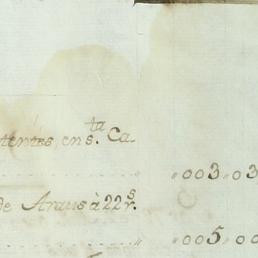 tentes, en s.ta Ca-
. . . . . . . . . . . . „ „003„03
de Araus à 22 r.s
. . . . . . . . . . . . „ „005„00